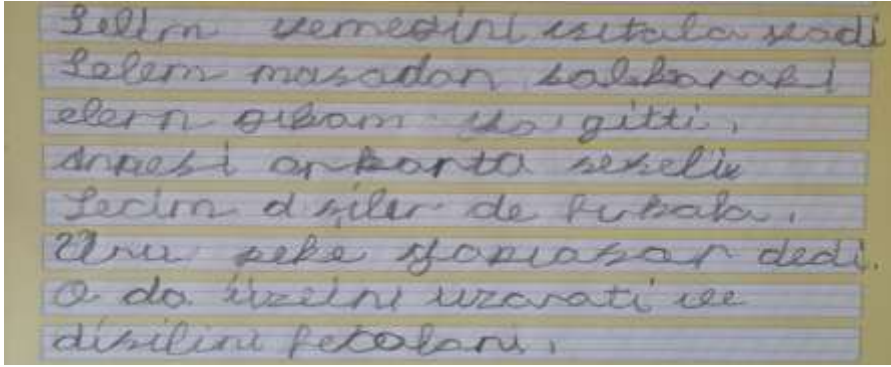 Selim yemeğini ısıtala yadi
Selem masadan kalkaraki
elern oikam ya gitti.
Annesi arkanta seselir
Secim d siler de fırsala.
Unu peke yapıasar dedi.
O da üzelni uzavati ve
disilini fetolanı.